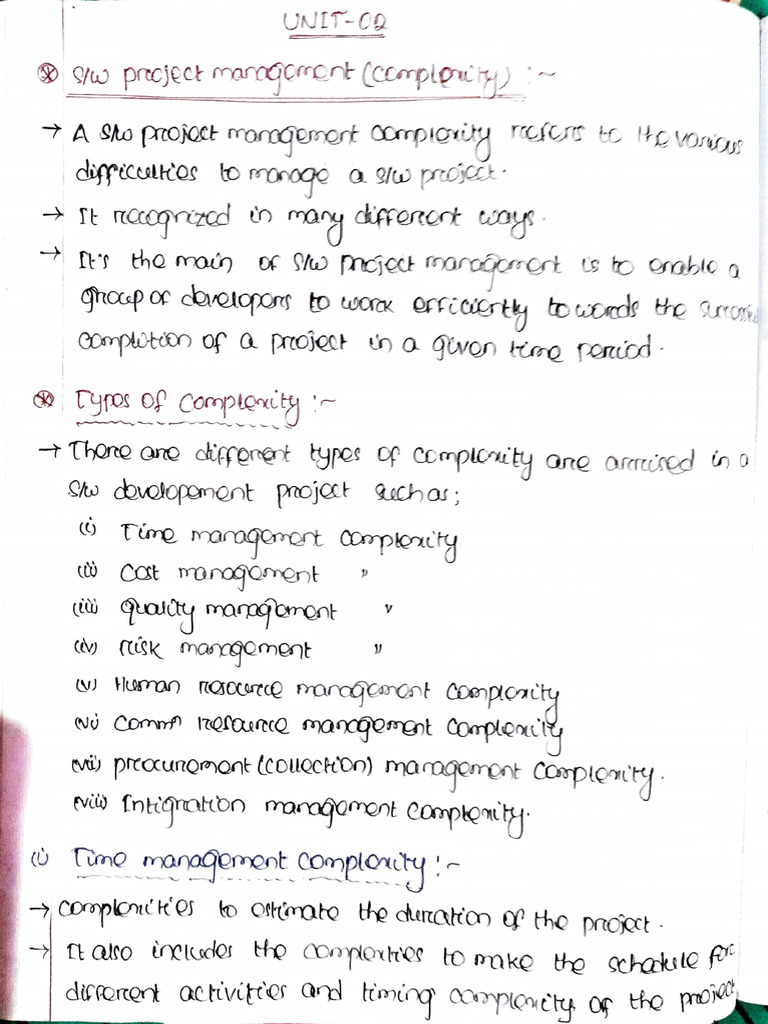 UNIT-02
S/w project management (complexity) :~
→ A s/w project management complexity refers to the various
difficulties to manage a s/w project.
→ It recognized in many different ways.
→ It's the main of s/w project management is to enable a
group of developers to work efficiently towords the successful
completion of a project in a given time period.
Types of complexity :~
→ There are different types of complexity are arrised in a
s/w developement project such as;
(i) Time management complexity
(ii) cost management "
(iii) quality management "
(iv) risk management "
(v) Human resource management complexity
(vi) commⁿ resource management complexity
(vii) procurement (collection) management complexity.
(viii) Intigration management complexity.
(i) Time management complexity :~
→ complexities to estimate the duration of the project.
→ It also includes the complexities to make the schedule for
different activities and timing complexity of the project